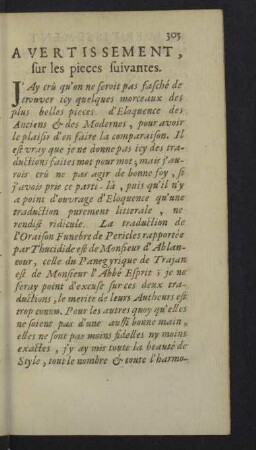 305
AVERTISSEMENT,
sur les pieces suivantes.
J'Ay crû qu'on ne seroit pas fasché de
trouver icy quelques morceaux des
plus belles pieces d'Eloquence des
Anciens & des Modernes, pour avoir
le plaisir d'en faire la comparaison. Il
est vray que je ne donne pas icy des tra-
ductions faites mot pour mot; mais j'au-
rois crû ne pas agir de bonne foy, si
j'avois pris ce parti-là, puis qu'il n'y
a point d'ouvrage d'Eloquence qu'une
traduction purement litterale, ne
rendist ridicule. La traduction de
l'Oraison Funebre de Pericles rapportée
par Thucidide est de Monsieur d'Ablan-
cour, celle du Panegyrique de Trajan
est de Monsieur l'Abbé Esprit; je ne
feray point d'excuse sur ces deux tra-
ductions, le merite de leurs Autheurs est
trop connu. Pour les autres quoy qu'elles
ne soient pas d'une aussi bonne main,
elles ne sont pas moins fidelles ny moins
exactes, j'y ay mis toute la beauté de
Style, tout le nombre & toute l'harmo-